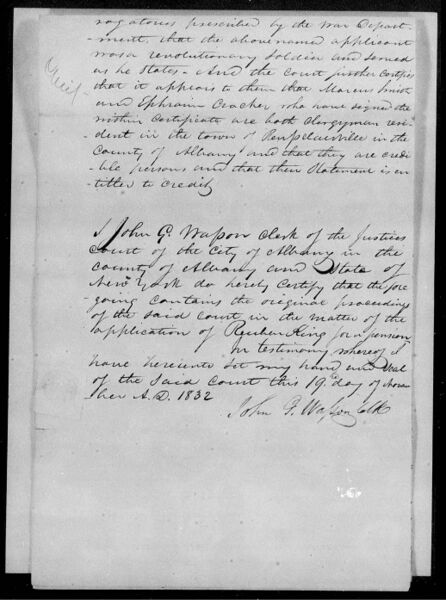 rogatories prescribed by the War Depart-
-ment, that the above named applicant
was a revolutionary Soldier and served
as he States - And the Court further certifies
that it appears to them that Marcus Smith
and Ephraim Crocker who have signed the
within Certificate are both Clergyman resi-
-dent in the town of Renselaerville in the
County of Albany and that they are credi-
-ble persons and that their Statement is en-
-titled to Credit
I John G. Wasson Clerk of the Justices
Court of the City of Albany in the
County of Albany and State of
New York do hereby Certify that the fore
going contains the original proceedings
of the said Court in the matter of the
application of Reuben King for a pension
In testimony whereof I
have hereunto set my hand and Seal
of the Said Court this 19th day of Novem
ber A.D. 1832
John G. Wasson Clk